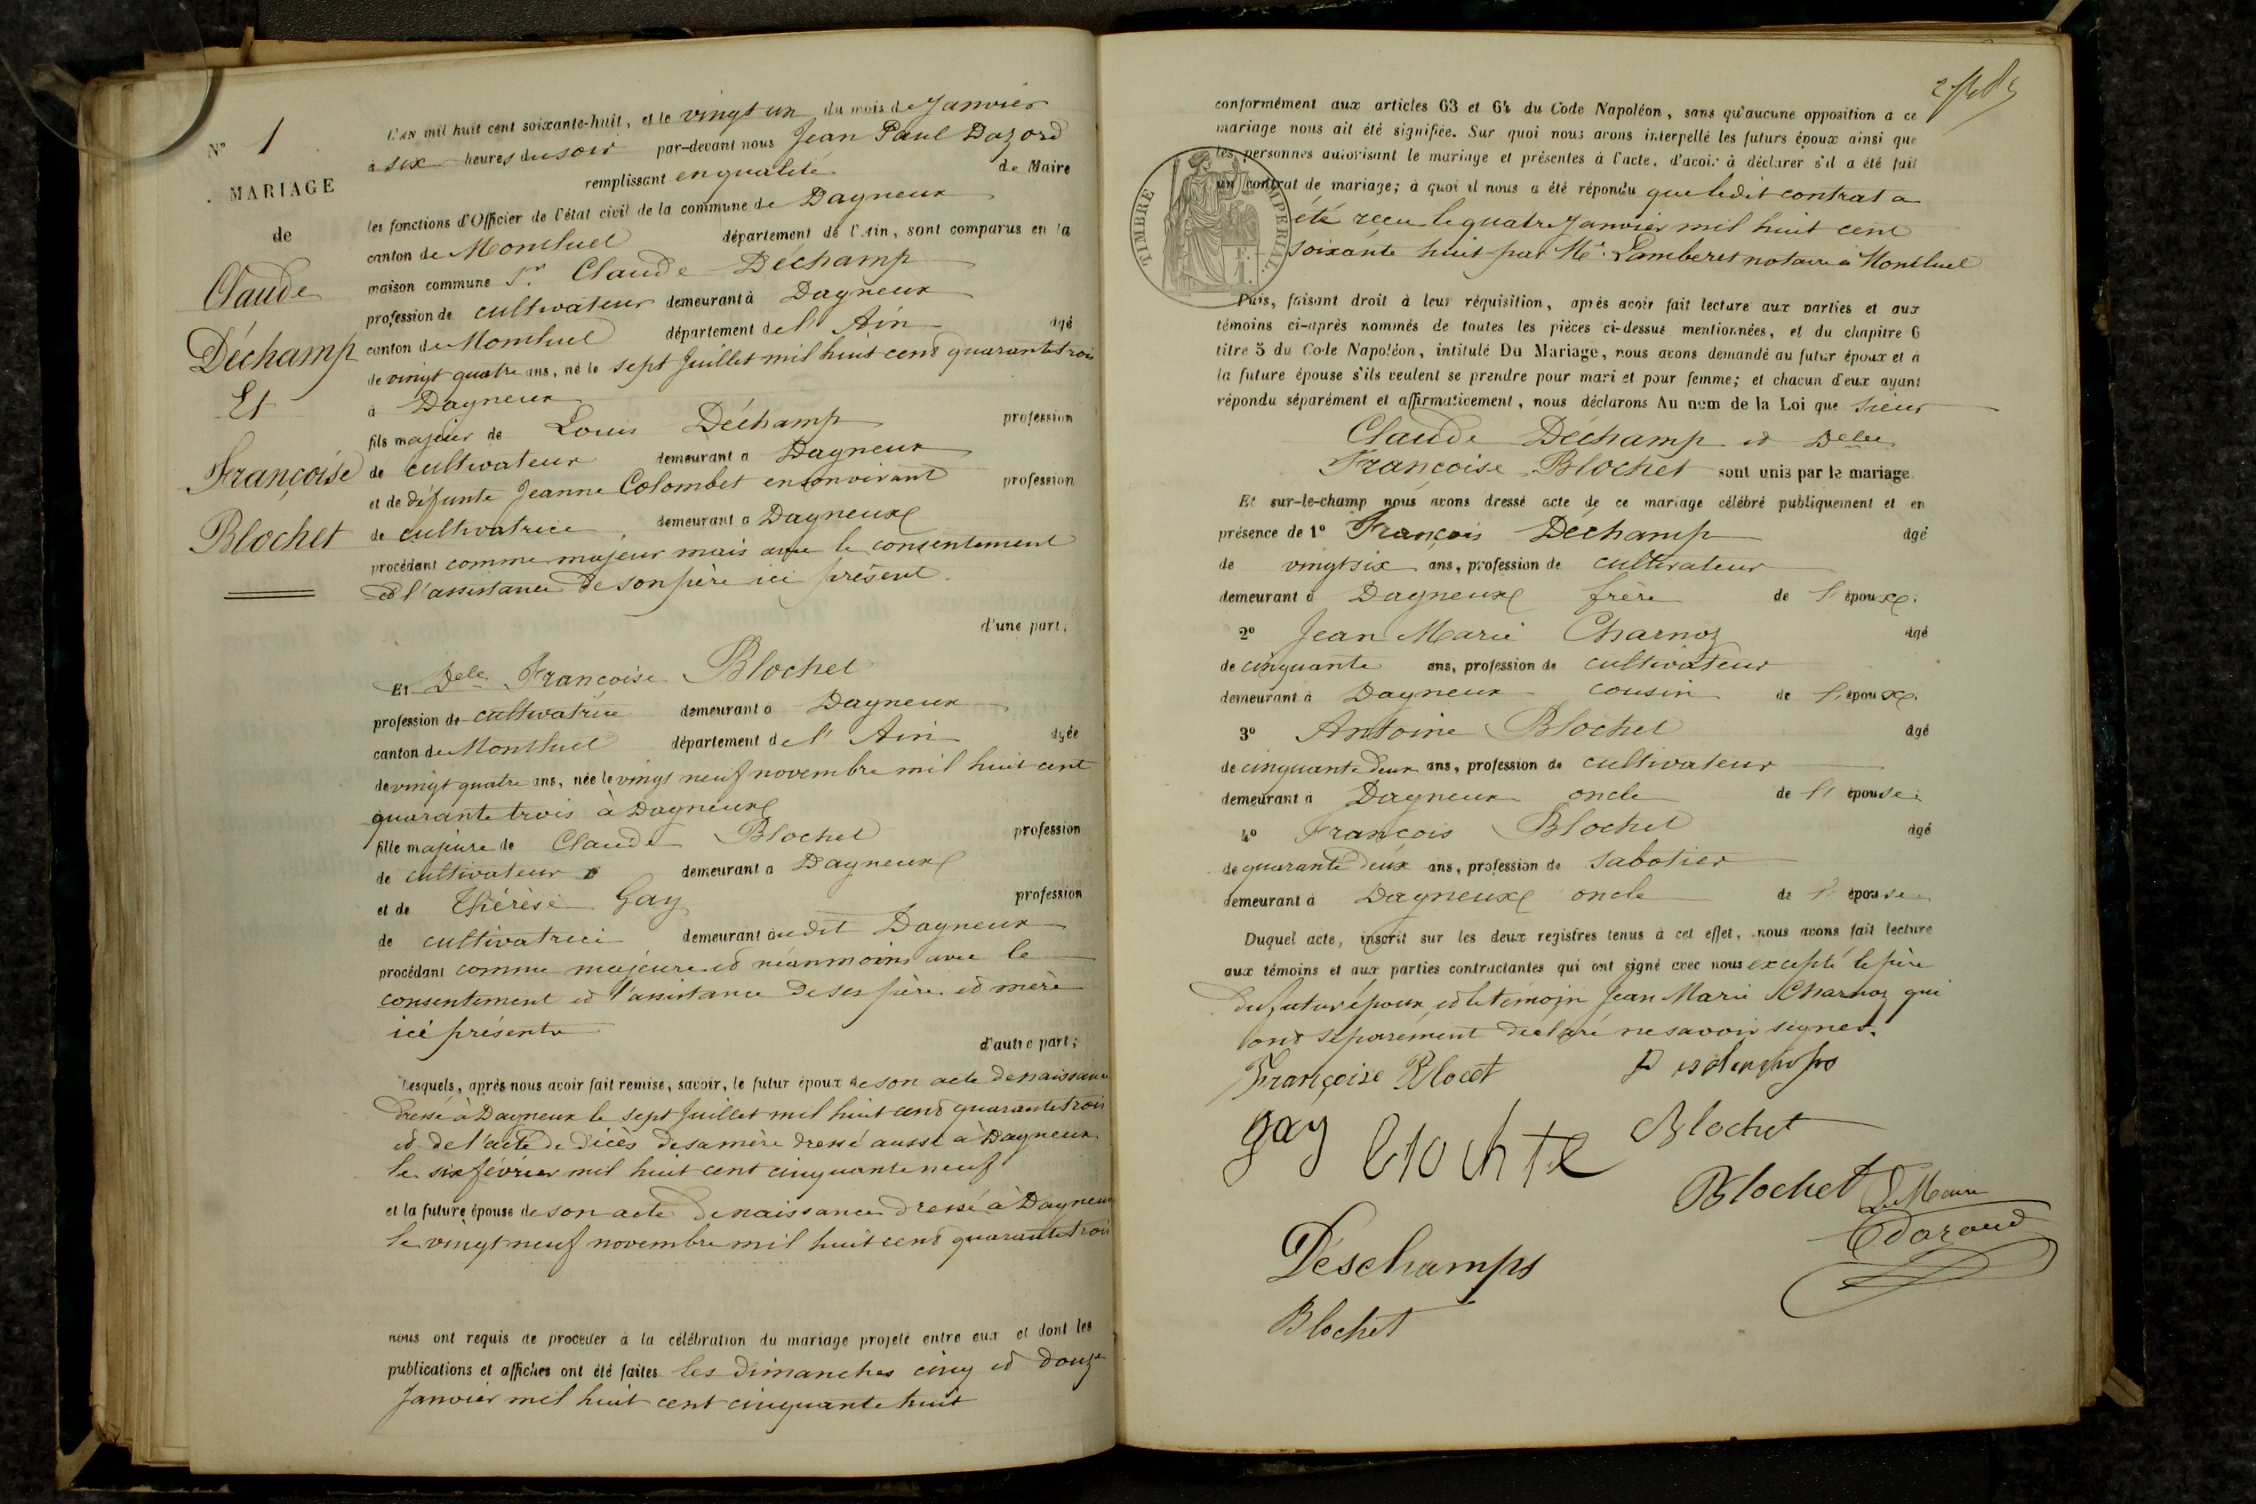 N° 1
MARIAGE
de
Claude
Déchamp
Et
Françoise
Blochet
L'AN mil huit cent soixante-huit, et le vingt un du mois de Janvier
à six heures du soir par-devant nous Jean Paul Dazord
remplissant en qualité de Maire
les fonctions d'Officier de l'état civil de la commune de Dagneux
canton de Montluel département de l'Ain, sont comparus en la
maison commune Sr Claude Déchamp
profession de cultivateur demeurant à Dagneux
canton de Montluel département de l'Ain âgé
de vingt quatre ans, né le sept Juillet mil huit cent quarante trois
à Dagneux
fils majeur de Louis Déchamp profession
de cultivateur demeurant à Dagneux
et de défunte Jeanne Colombet en son vivant profession
de cultivatrice demeurant à Dagneux
procédant comme majeur mais avec le consentement
et l'assistance de son père ici présent.
d'une part;
Et Delle Françoise Blochet
profession de cultivatrice demeurant à Dagneux
canton de Montluel département de l'Ain âgée
de vingt quatre ans, née le vingt neuf novembre mil huit cent
quarante trois à Dagneux
fille majeure de Claude Blochet profession
de cultivateur demeurant à Dagneux
et de Thérèse Gay profession
de cultivatrice demeurant audit Dagneux
procédant comme majeure et néanmoins avec le
consentement et l'assistance de ses père et mère
ici présents
d'autre part;
Lesquels, après nous avoir fait remise, savoir, le futur époux de son acte de naissance
dressé à Dagneux le sept Juillet mil huit cent quarante trois
et de l'acte de décès de sa mère dressé aussi à Dagneux
le six février mil huit cent cinquante neuf
et la future épouse de son acte de naissance dressé à Dagneux
le vingt neuf novembre mil huit cent quarante trois
nous ont requis de procéder à la célébration du mariage projeté entre eux et dont les
publications et affiches ont été faites les dimanches cinq et douze
Janvier mil huit cent cinquante huit
conformément aux articles 63 et 64 du Code Napoléon, sans qu'aucune opposition à ce
mariage nous ait été signifiée. Sur quoi nous avons interpellé les futurs époux ainsi que
les personnes autorisant le mariage et présentes à l'acte, d'avoir à déclarer s'il a été fait
un contrat de mariage; à quoi il nous a été répondu que ledit contrat a
été reçu le quatre Janvier mil huit cent
soixante huit par Me Lamberet notaire à Montluel
TIMBRE IMPERIAL
1 F.
Puis, faisant droit à leur réquisition, après avoir fait lecture aux parties et aux
témoins ci-après nommés de toutes les pièces ci-dessus mentionnées, et du chapitre 6
titre 5 du Code Napoléon, intitulé Du Mariage, nous avons demandé au futur époux et à
la future épouse s'ils veulent se prendre pour mari et pour femme; et chacun d'eux ayant
répondu séparément et affirmativement, nous déclarons Au nom de la Loi que sieur
Claude Déchamp et Delle
Françoise Blochet sont unis par le mariage.
Et sur-le-champ nous avons dressé acte de ce mariage célébré publiquement et en
présence de 1° François Déchamp âgé
de vingt six ans, profession de cultivateur
demeurant à Dagneux frère de l'époux.
2° Jean Marie Charnoz âgé
de cinquante ans, profession de cultivateur
demeurant à Dagneux cousin de l'époux.
3° Antoine Blochet âgé
de cinquante deux ans, profession de cultivateur
demeurant à Dagneux oncle de l'épouse.
4° François Blochet âgé
de quarante deux ans, profession de sabotier
demeurant à Dagneux oncle de l'épouse
Duquel acte, inscrit sur les deux registres tenus à cet effet, nous avons fait lecture
aux témoins et aux parties contractantes qui ont signé avec nous excepté le père
du futur époux, et le témoin Jean Marie Charnoz qui
ont séparément déclaré ne savoir signer.
Françoise Blocet
gay
Blochet
Blochet
Le Maire
Dazord
Déschamps
Blochet